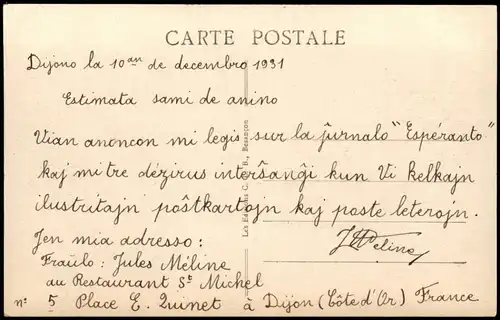 CARTE POSTALE
Dijono la 10an de decembro 1931
Estimata sami de anino
Vian anoncon mi legis sur la ĵurnalo "Espéranto"
kaj mi tre dézirus interŝanĝi kun Vi kelkajn
ilustritajn poŝtkartojn kaj poste leterojn.
Jen mia adresso:
JMeline
Fraŭlo: Jules Méline
au Restaurant St Michel
n° 5 Place E. Quinet à Dijon (Côte d'Or) France
Les Editions C. B., Besançon